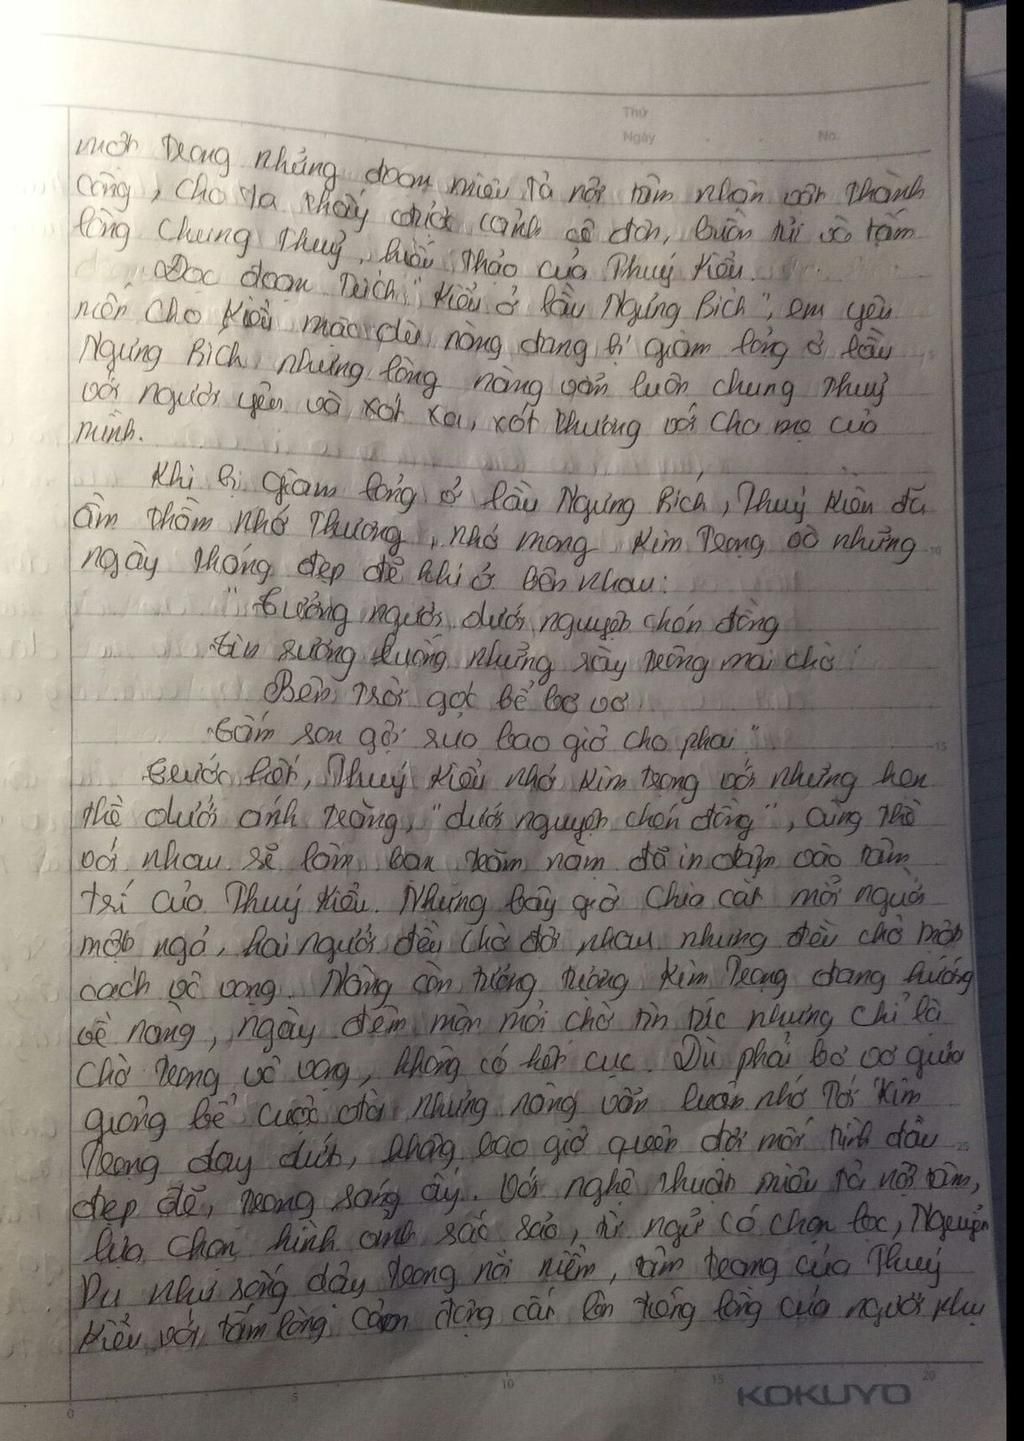 Thứ
Ngày No.
một trong những đoạn miêu tả nội tâm nhân vật thành
công, cho ta thấy cảnh cô đơn, buồn tủi và tấm
lòng chung thuỷ, hiếu thảo của Thuý Kiều.
Đọc đoạn trích "Kiều ở lầu Ngưng Bích", em yêu
mến cho Kiều mặc dù nàng đang bị giam lỏng ở lầu
Ngưng Bích nhưng lòng nàng vẫn luôn chung thuỷ
với người yêu và xót xa, xót thương với cha mẹ của
mình.
Khi bị giam lỏng ở lầu Ngưng Bích, Thuý Kiều đã
âm thầm nhớ thương, nhớ mong Kim Trọng và những
ngày tháng đẹp đẽ khi ở bên nhau:
"Tưởng người dưới nguyệt chén đồng
Tin sương luống những rày trông mai chờ
Bên trời góc bể bơ vơ
Tấm son gột rửa bao giờ cho phai"
Trước hết, Thuý Kiều nhớ Kim Trọng với những hẹn
thề dưới ánh trăng, "dưới nguyệt chén đồng", cùng thề
với nhau sẽ làm bạn trăm năm đã in đậm vào tâm
trí của Thuý Kiều. Nhưng bây giờ chia cắt mỗi người
một ngả, hai người đều chờ đợi nhau nhưng đều chờ một
cách vô vọng. Nàng còn tưởng tượng Kim Trọng đang hướng
về nàng, ngày đêm mòn mỏi chờ tin tức nhưng chỉ là
chờ trong vô vọng, không có kết cục. Dù phải bơ vơ giữa
giông bể cuộc đời nhưng nàng vẫn luôn nhớ tới Kim
Trọng day dứt, không bao giờ quên được mối tình đầu
đẹp đẽ, trong sáng ấy. Với nghệ thuật miêu tả nội tâm,
lựa chọn hình ảnh sắc sảo, từ ngữ có chọn lọc, Nguyễn
Du như sống dậy trong nỗi niềm, tâm trạng của Thuý
Kiều với tấm lòng cảm động cất lên tiếng lòng của người phụ
KOKUYO